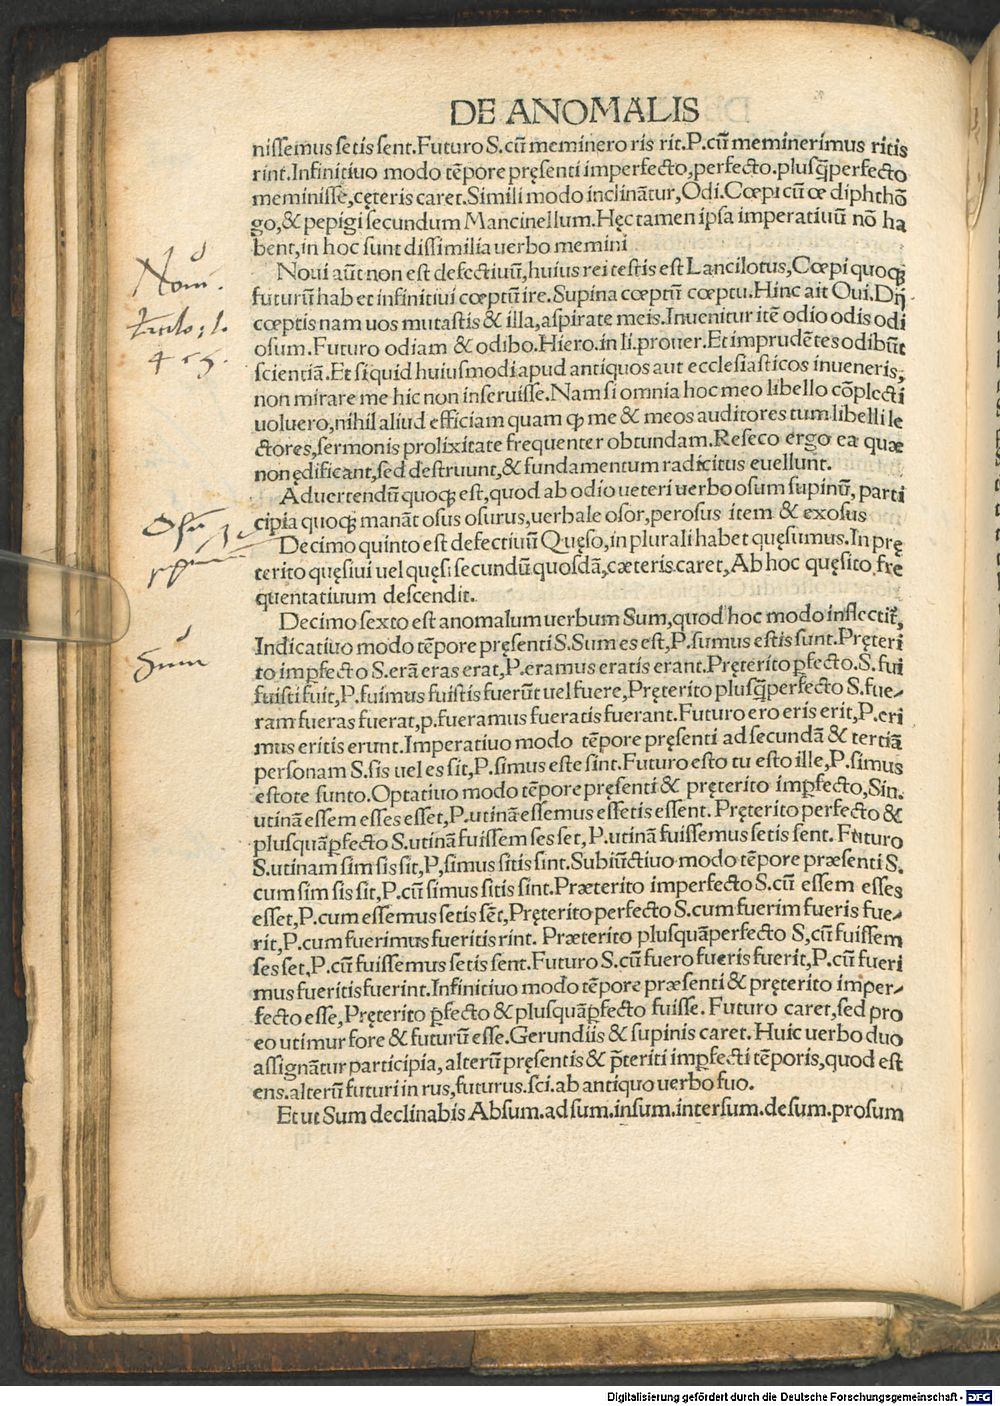 DE ANOMALIS
niſſemus ſetis ſent.Futuro S.cū meminero ris rit.P.cū meminerimus ritis
rint.Infinitiuo modo tēpore pręſenti imperfecto,perfecto.pluſq̄perfecto
meminiſſe,cęteris caret.Simili modo inclinātur,Odi.Cœpi cū œ diphthō
go,& pepigi ſecundum Mancinellum.Hęc tamen ipſa imperatiuū nō ha
bent,in hoc ſunt diſſimilia uerbo memini
Noui aūt non eſt defectiuū,huius rei teſtis eſt Lancilotus,Cœpi quoqꝫ
futurū hab et infinitiui cœptū ire.Supina cœptū cœptu.Hinc ait Oui.Dij
cœptis nam uos mutaſtis & illa,aſpirate meis.Inuenitur itē odio odis odi
oſum.Futuro odiam & odibo.Hiero.in li.prouer.Et imprudētes odibūt
ſcientiā.Et ſi quid huiuſmodi apud antiquos aut eccleſiaſticos inueneris,
non mirare me hic non inſeruiſſe.Nam ſi omnia hoc meo libello cōplecti
uoluero,nihil aliud efficiam quam ꝙ me & meos auditores tum libelli le
ctores,ſermonis prolixitate frequenter obtundam.Reſeco ergo ea quæ
non ędificant,ſed deſtruunt,& fundamentum radicitus euellunt.
Aduertendū quoqꝫ eſt,quod ab odio ueteri uerbo oſum ſupinū,parti
cipia quoqꝫ manāt oſus oſurus,uerbale oſor,peroſus item & exoſus
Decimo quinto eſt defectiuū Quęſo,in plurali habet quęſumus.In prę
terito quęſiui uel quęſi ſecundū quoſdā,cæteris caret,Ab hoc quęſito fre
quentatiuum deſcendit.
Decimo ſexto eſt anomalum uerbum Sum,quod hoc modo inflectit̄,
Indicatiuo modo tēpore pręſenti S.Sum es eſt,P.ſumus eſtis ſunt.Pręteri
to imꝑfecto S.erā eras erat,P.eramus eratis erant.Pręterito ꝑfecto.S.fui
fuiſti fuit,P.fuimus fuiſtis fuerūt uel fuere,Pręterito pluſq̄perfecto S.fue⸗
ram fueras fuerat,p.fueramus fueratis fuerant.Futuro ero eris erit,P.eri
mus eritis erunt.Imperatiuo modo tēpore pręſenti ad ſecundā & tertiā
perſonam S.ſis uel es ſit,P.ſimus eſte ſint.Futuro eſto tu eſto ille,P.ſimus
eſtote ſunto.Optatiuo modo tēpore pręſenti & pręterito imꝑfecto,Sin.
utinā eſſem eſſes eſſet,P.utinā eſſemus eſſetis eſſent. Pręterito perfecto &
pluſquāꝑfecto S.utinā fuiſſem ſes ſet, P.utinā fuiſſemus ſetis ſent. Futuro
S.utinam ſim ſis ſit,P,ſimus ſitis ſint.Subiūctiuo modo tēpore præſenti S.
cum ſim ſis ſit,P.cū ſimus ſitis ſint.Præterito imperfecto S.cū eſſem eſſes
eſſet,P.cum eſſemus ſetis ſēt,Pręterito perfecto S.cum fuerim fueris fue⸗
rit,P.cum fuerimus fueritis rint. Præterito pluſquāperfecto S,cū fuiſſem
ſes ſet,P.cū fuiſſemus ſetis ſent.Futuro S.cū fuero fueris fuerit,P.cū fueri
mus fueritis fuerint.Infinitiuo modo tēpore præſenti & pręterito imper⸗
fecto eſſe,Pręterito ꝑfecto & pluſquāꝑfecto fuiſſe. Futuro caret,ſed pro
eo utimur fore & futurū eſſe.Gerundiis & ſupinis caret.Huic uerbo duo
aſſignātur participia,alterū pręſentis & p̄teriti imꝑfecti tēporis,quod eſt
ens.alterū futuri in rus,futurus.ſci.ab antiquo uerbo fuo.
Et ut Sum declinabis Abſum.adſum.inſum.interſum.deſum.proſum
Sum
Digitalisierung gefördert durch die Deutsche Forschungsgemeinschaft - DFG